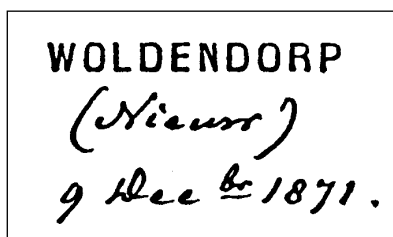 WOLDENDORP
(Nieuw)
9 Dec br 1871.